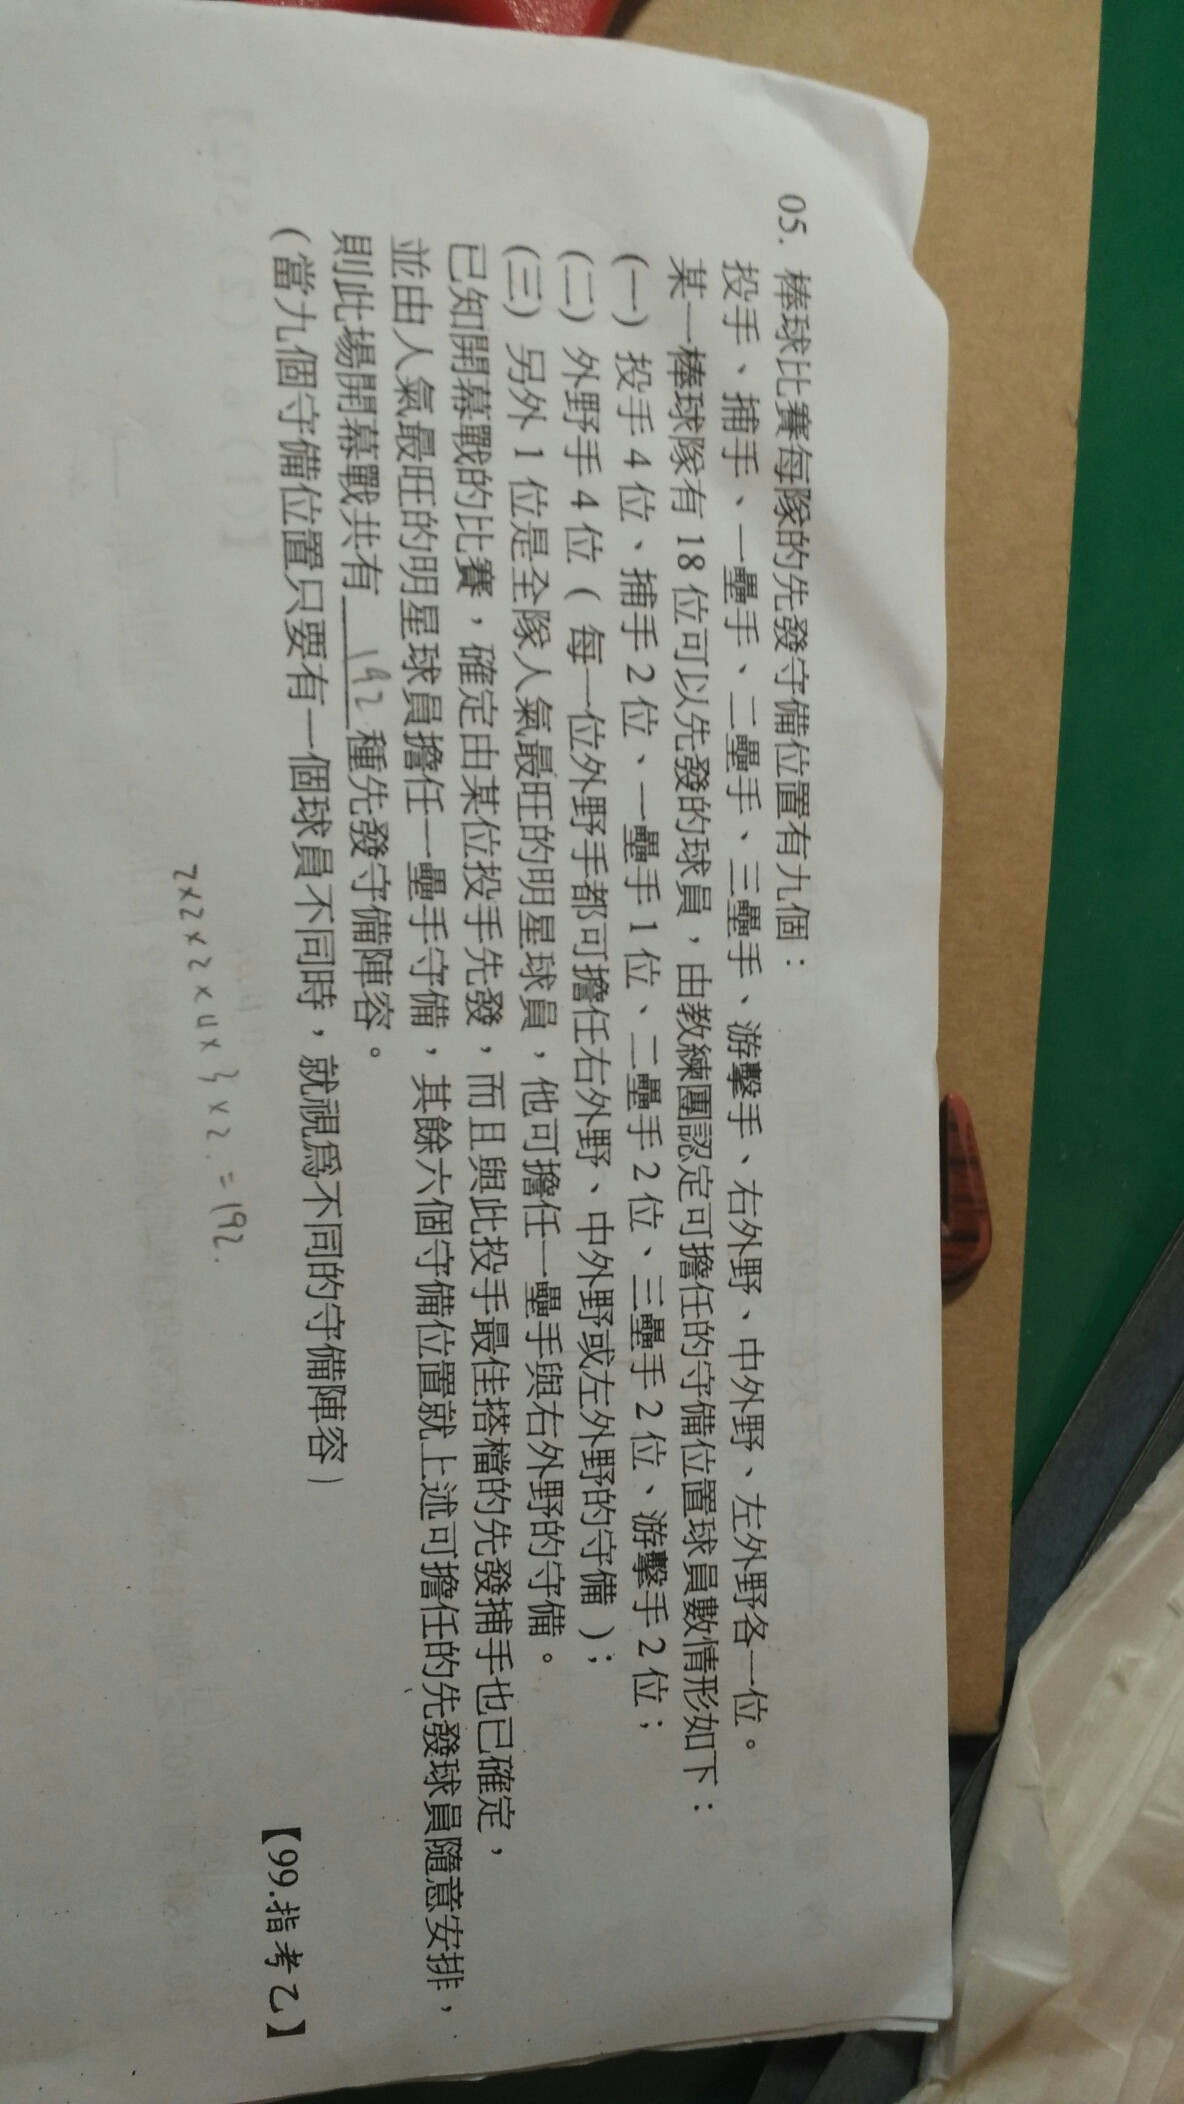 05. 棒球比賽每隊的先發守備位置有九個：
投手、捕手、一壘手、二壘手、三壘手、游擊手、右外野、中外野、左外野各一位。
某一棒球隊有 18 位可以先發的球員，由教練團認定可擔任的守備位置球員數情形如下：
(一) 投手 4 位、捕手 2 位、一壘手 1 位、二壘手 2 位、三壘手 2 位、游擊手 2 位；
(二) 外野手 4 位（每一位外野手都可擔任右外野、中外野或左外野的守備）；
(三) 另外 1 位是全隊人氣最旺的明星球員，他可擔任一壘手與右外野的守備。
已知開幕戰的比賽，確定由某位投手先發，而且與此投手最佳搭檔的先發捕手也已確定，
並由人氣最旺的明星球員擔任一壘手守備，其餘六個守備位置就上述可擔任的先發球員隨意安排，
則此場開幕戰共有 192 種先發守備陣容。
（當九個守備位置只要有一個球員不同時，就視為不同的守備陣容）
【99.指考乙】
2×2×2×4×3×2=192.